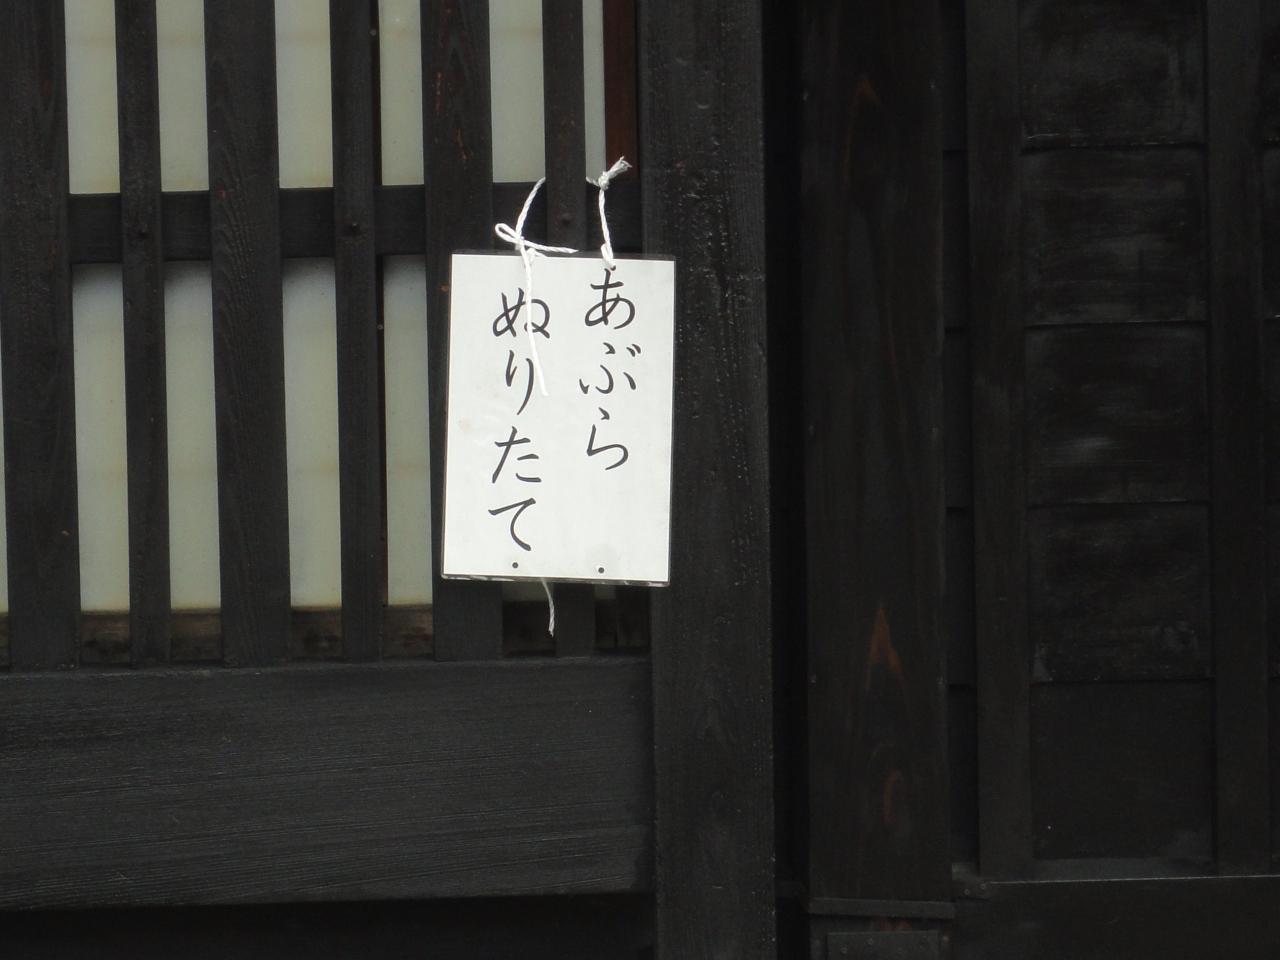 あぶら
ぬりたて